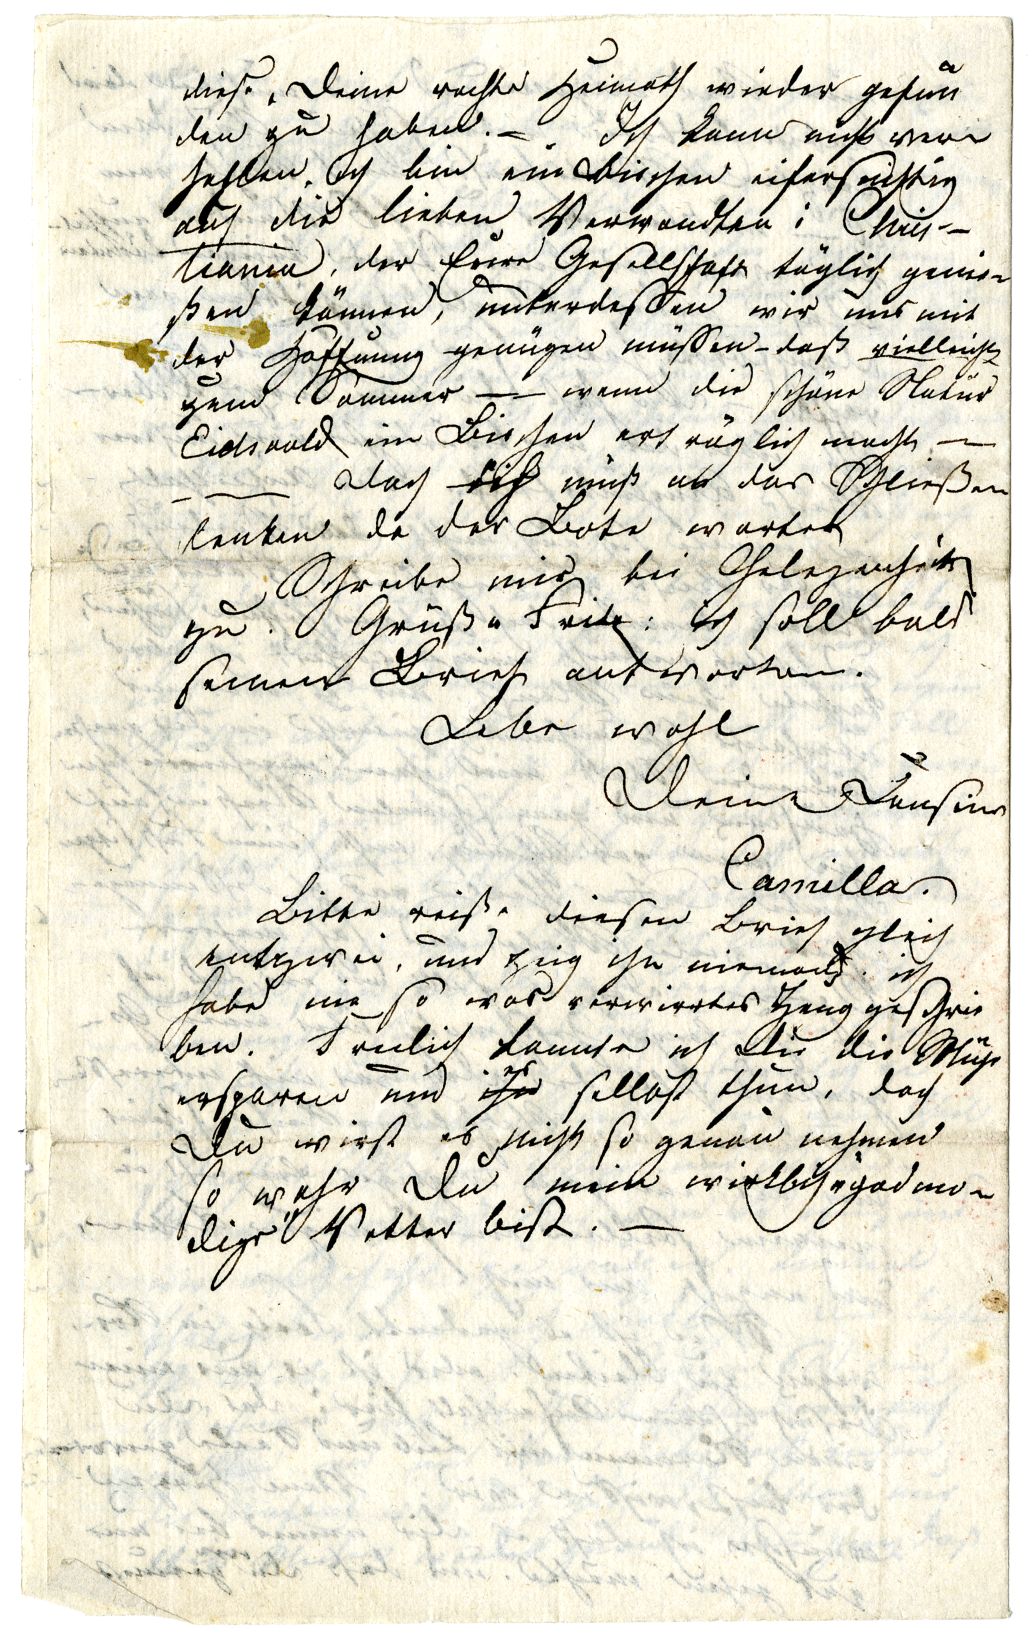 diese, Deine rechte Heimath wieder gefun
den zu haben. — Ich kann nicht ver-
hehlen, ich bin ein bischen eifersüchtig
auf die lieben Verwandten i Chris-
tiania, der Eure Gesellschaft täglich genie-
ßen können, unterdessen wir uns mit
der Hoffnung genügen müssen - daß vielleicht
zum Sommer — wenn die schöne Natur
Eidsvold ein Bischen erträglich macht —
— Doch ich muß an das Schließen
denken da der Bote wartet
Schreibe mir bei Gelegenheit
zu. Grüße Fritz: ich soll bald
seinen Brief antworten.
Lebe wohl
Deine Cousine
Camilla.
Bitte reiße diesen Brief gleich
entzwei, und zeig ihn niemand. ich
habe nie so was verwirrtes Zeug geschrie
ben. Freilich konnte ich Dir die Mühe
ersparen und es selbst thun, doch
Du wirst es nicht so genau nehmen
so wahr Du mein wirklich "godmo-
dige" Vetter bist. —